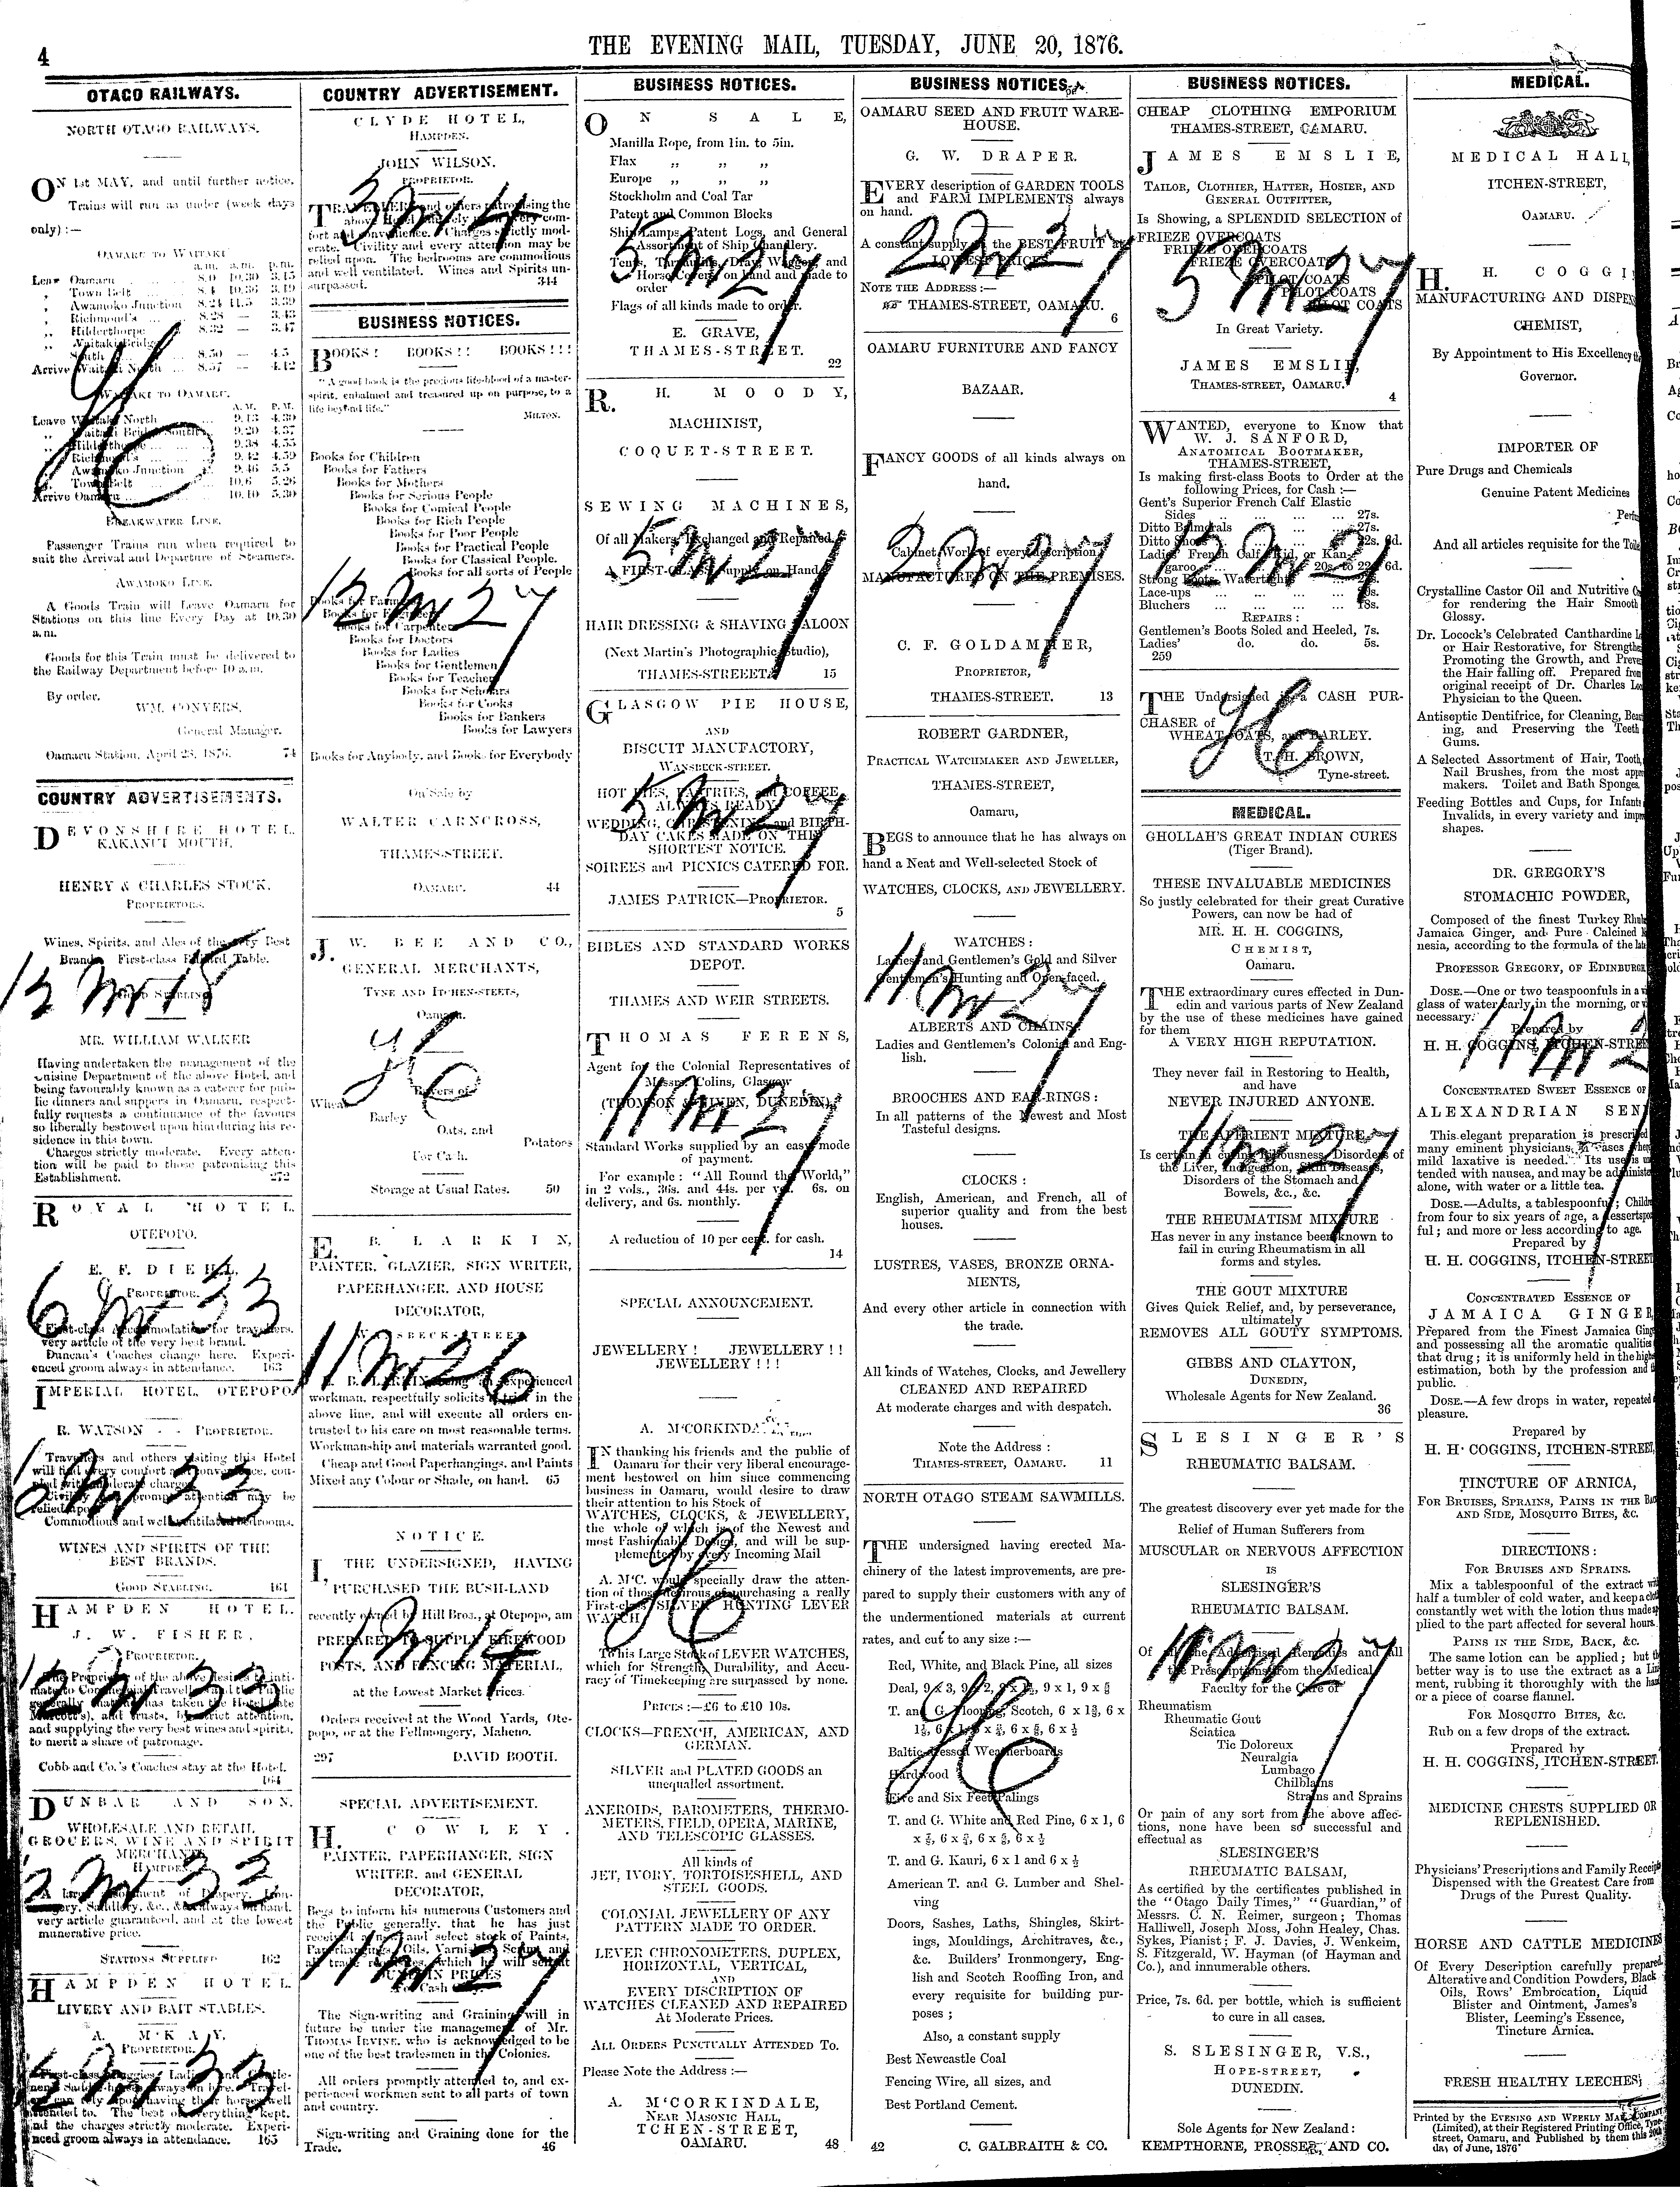 4
THE EVENING MAIL, TUESDAY, JUNE 20, 1876.
OTAGO RAILWAYS.
NORTH OTAGO RAILWAYS.
ON 1st MAY, and until further notice,
Trains will run as under (week days
only) :—
OAMARU TO WAITAKI
a.m. a.m. p.m.
Leave Oamaru ... 8.0 10.30 3.15
,, Town Belt ... 8.4 10.36 3.19
,, Awamoko Junction 8.24 11.5 3.39
,, Richmond's ... 8.28 — 3.43
,, Hilderthorpe ... 8.32 — 3.47
,, Waitaki Bridge
South ... 8.50 — 4.5
Arrive Waitaki North ... 8.57 — 4.12
WAITAKI TO OAMARU.
A.M. P.M.
Leave Waitaki North ... 9.13 4.30
,, Waitaki Bridge South ... 9.20 4.37
,, Hilderthorpe ... 9.38 4.55
,, Richmond's ... 9.42 4.59
,, Awamoko Junction ... 9.46 5.5
,, Town Belt ... 10.6 5.26
Arrive Oamaru ... 10.10 5.30
BREAKWATER LINE.
Passenger Trains run when required to
suit the Arrival and Departure of Steamers.
AWAMOKO LINE.
A Goods Train will Leave Oamaru for
Stations on this line Every Day at 10.30
a.m.
Goods for this Train must be delivered to
the Railway Department before 10 a.m.
By order,
WM. CONYERS,
General Manager.
Oamaru Station, April 28, 1876. 74
COUNTRY ADVERTISEMENTS.
DEVONSHIRE HOTEL,
KAKANUI MOUTH.
HENRY & CHARLES STOCK,
PROPRIETORS.
Wines, Spirits, and Ales of the very Best
Brands. First-class Billiard Table.
GOOD STABLING
12 m 18
MR. WILLIAM WALKER
Having undertaken the management of the
Cuisine Department of the above Hotel, and
being favourably known as a caterer for pub-
lic dinners and suppers in Oamaru, respect-
fully requests a continuance of the favours
so liberally bestowed upon him during his re-
sidence in this town.
Charges strictly moderate. Every atten-
tion will be paid to those patronising this
Establishment. 272
ROYAL HOTEL,
OTEPOPO.
E. F. DIEHL,
PROPRIETOR.
6 m 33
First-class Accommodation for travellers.
very article of the very best brand.
Duncan's Coaches change here. Experi-
enced groom always in attendance. 163
IMPERIAL HOTEL, OTEPOPO
R. WATSON - - PROPRIETOR.
Travellers and others visiting this Hotel
will find every comfort and convenience, cou-
pled with moderate charges.
Civility and prompt attention may be
relied upon.
Commodious and well ventilated bedrooms.
WINES AND SPIRITS OF THE
BEST BRANDS.
GOOD STABLING. 161
HAMPDEN HOTEL.
J. W. FISHER,
PROPRIETOR.
12 m 33
The Proprietor of the above desires to inti-
mate to Commercial Travellers and the Public
generally that he has taken the Hotel (late
Marcott's), and trusts, by strict attention,
and supplying the very best wines and spirits,
to merit a share of patronage.
Cobb and Co.'s Coaches stay at the Hotel.
164
DUNBAR AND SON,
WHOLESALE AND RETAIL
GROCERS, WINE AND SPIRIT
MERCHANTS
HAMPDEN
12 m 33
A large assortment of Drapery, Iron-
mongery, Saddlery, &c., &c., always on hand.
very article guaranteed, and at the lowest
munerative price.
STATIONS SUPPLIED 162
HAMPDEN HOTEL
LIVERY AND BAIT STABLES.
A. M'KAY,
PROPRIETOR.
12 m 33
First-class Buggies, Ladies' and Gentle-
men's Saddle-horses always on hire. Travel-
lers can rely upon having their horses well
attended to. The best of everything kept,
and the charges strictly moderate. Experi-
enced groom always in attendance. 165
COUNTRY ADVERTISEMENT.
CLYDE HOTEL,
HAMPDEN.
JOHN WILSON,
PROPRIETOR.
3 m 4
TRAVELLERS and others patronising the
above Hotel may rely upon every com-
fort and convenience. Charges strictly mod-
erate. Civility and every attention may be
relied upon. The bedrooms are commodious
and well ventilated. Wines and Spirits un-
surpassed. 344
BUSINESS NOTICES.
BOOKS! BOOKS!! BOOKS!!!
"A good book is the precious life-blood of a master-
spirit, embalmed and treasured up on purpose, to a
life beyond life."
MILTON.
Books for Children
Books for Fathers
Books for Mothers
Books for Serious People
Books for Comical People
Books for Rich People
Books for Poor People
Books for Practical People
Books for Classical People.
Books for all sorts of People
12 m 27
Books for Farmers
Books for Engineers
Books for Carpenters
Books for Doctors
Books for Ladies
Books for Gentlemen
Books for Teachers
Books for Scholars
Books for Cooks
Books for Bankers
Books for Lawyers
Books for Anybody, and Books for Everybody
On Sale by
WALTER CARNCROSS,
THAMES-STREET.
OAMARU. 44
J. W. BEE AND CO.,
GENERAL MERCHANTS,
TYNE AND ITCHEN-STEETS,
Oamaru.
Buyers of
Wheat
Barley
Oats, and
Potatoes
For Cash.
Storage at Usual Rates. 50
E. B. LARKIN,
PAINTER, GLAZIER, SIGN WRITER,
PAPERHANGER, AND HOUSE
DECORATOR,
WANSBECK-STREET
11 m 26
E. B. LARKIN, being an experienced
workman, respectfully solicits a trial in the
above line, and will execute all orders en-
trusted to his care on most reasonable terms.
Workmanship and materials warranted good.
Cheap and Good Paperhangings, and Paints
Mixed any Colour or Shade, on hand. 65
NOTICE.
I, THE UNDERSIGNED, HAVING
PURCHASED THE BUSH-LAND
recently owned by Hill Bros., at Otepopo, am
PREPARED TO SUPPLY FIREWOOD
POSTS, AND FENCING MATERIAL,
1 m 14
at the Lowest Market Prices.
Orders received at the Wood Yards, Ote-
popo, or at the Fellmongery, Maheno.
297 DAVID BOOTH.
SPECIAL ADVERTISEMENT.
H. COWLEY.
PAINTER, PAPERHANGER, SIGN
WRITER, and GENERAL
DECORATOR,
Begs to inform his numerous Customers and
the Public generally, that he has just
received a new and select stock of Paints,
Paperhangings, Oils, Varnishes, Scrims, and
all trade requisites, which he will sell at
DUNEDIN PRICES
for Cash only.
11 m 27
The Sign-writing and Graining will in
future be under the management of Mr.
THOMAS IRVINE, who is acknowledged to be
one of the best tradesmen in the Colonies.
All orders promptly attended to, and ex-
perienced workmen sent to all parts of town
and country.
Sign-writing and Graining done for the
Trade. 46
BUSINESS NOTICES.
ON SALE,
Manilla Rope, from 1in. to 5in.
Flax ,, ,, ,,
Europe ,, ,, ,,
Stockholm and Coal Tar
Patent and Common Blocks
Ship Lamps, Patent Logs, and General
Assortment of Ship Chandlery.
Tents, Tarpaulins, Dray, Waggon, and
Horse Covers, on hand and made to
order
5 m 27
Flags of all kinds made to order.
E. GRAVE,
THAMES-STREET.
22
R. H. MOODY,
MACHINIST,
COQUET-STREET.
SEWING MACHINES,
Of all Makers, Exchanged and Repaired.
A FIRST-CLASS Supply on Hand
5 m 27
HAIR DRESSING & SHAVING SALOON
(Next Martin's Photographic Studio),
THAMES-STREEET. 15
GLASGOW PIE HOUSE,
AND
BISCUIT MANUFACTORY,
WANSBECK-STREET.
HOT PIES, PASTRIES, and COFFEE
ALWAYS READY.
5 m 27
WEDDING, CHRISTENING, and BIRTH-
DAY CAKES MADE ON THE
SHORTEST NOTICE.
SOIREES and PICNICS CATERED FOR.
JAMES PATRICK—PROPRIETOR.
5
BIBLES AND STANDARD WORKS
DEPOT.
THAMES AND WEIR STREETS.
THOMAS FERENS,
Agent for the Colonial Representatives of
Messrs. Colins, Glasgow
(THOMSON & NIVEN, DUNEDIN),
11 m 27
Standard Works supplied by an easy mode
of payment.
For example : "All Round the World,"
in 2 vols., 36s. and 44s. per vol. 6s. on
delivery, and 6s. monthly.
A reduction of 10 per cent. for cash.
14
SPECIAL ANNOUNCEMENT.
JEWELLERY! JEWELLERY!!
JEWELLERY!!!
A. M'CORKINDALE
IN thanking his friends and the public of
Oamaru for their very liberal encourage-
ment bestowed on him since commencing
business in Oamaru, would desire to draw
their attention to his Stock of
WATCHES, CLOCKS, & JEWELLERY,
the whole of which is of the Newest and
most Fashionable Design, and will be sup-
plemented by every Incoming Mail
A. M'C. would specially draw the atten-
tion of those desirous of purchasing a really
First-class SILVER HUNTING LEVER
WATCH
To his Large Stock of LEVER WATCHES,
which for Strength, Durability, and Accu-
racy of Timekeeping are surpassed by none.
PRICES :—£6 to £10 10s.
CLOCKS—FRENCH, AMERICAN, AND
GERMAN.
SILVER and PLATED GOODS an
unequalled assortment.
ANEROIDS, BAROMETERS, THERMO-
METERS, FIELD, OPERA, MARINE,
AND TELESCOPIC GLASSES.
All kinds of
JET, IVORY, TORTOISESHELL, AND
STEEL GOODS.
COLONIAL JEWELLERY OF ANY
PATTERN MADE TO ORDER.
LEVER CHRONOMETERS, DUPLEX,
HORIZONTAL, VERTICAL,
AND
EVERY DISCRIPTION OF
WATCHES CLEANED AND REPAIRED
At Moderate Prices.
ALL ORDERS PUNCTUALLY ATTENDED TO.
Please Note the Address :—
A. M'CORKINDALE,
NEAR MASONIC HALL,
TCHEN-STREET,
OAMARU. 48
BUSINESS NOTICES.
OAMARU SEED AND FRUIT WARE-
HOUSE.
G. W. DRAPER.
EVERY description of GARDEN TOOLS
and FARM IMPLEMENTS always
on hand.
A constant supply of the BEST FRUIT at
LOWEST PRICES.
2 m 27
NOTE THE ADDRESS :—
THAMES-STREET, OAMARU.
6
OAMARU FURNITURE AND FANCY
BAZAAR.
FANCY GOODS of all kinds always on
hand.
Cabinet Work of every description
MANUFACTURED ON THE PREMISES.
2 m 27
C. F. GOLDAMMER,
PROPRIETOR,
THAMES-STREET. 13
ROBERT GARDNER,
PRACTICAL WATCHMAKER AND JEWELLER,
THAMES-STREET,
Oamaru,
BEGS to announce that he has always on
hand a Neat and Well-selected Stock of
WATCHES, CLOCKS, AND JEWELLERY.
WATCHES :
Ladies' and Gentlemen's Gold and Silver
Gentlemen's Hunting and Open-faced.
11 m 27
ALBERTS AND CHAINS,
Ladies and Gentlemen's Colonial and Eng-
lish.
BROOCHES AND EAR-RINGS :
In all patterns of the Newest and Most
Tasteful designs.
CLOCKS :
English, American, and French, all of
superior quality and from the best
houses.
LUSTRES, VASES, BRONZE ORNA-
MENTS,
And every other article in connection with
the trade.
All kinds of Watches, Clocks, and Jewellery
CLEANED AND REPAIRED
At moderate charges and with despatch.
Note the Address :
THAMES-STREET, OAMARU. 11
NORTH OTAGO STEAM SAWMILLS.
THE undersigned having erected Ma-
chinery of the latest improvements, are pre-
pared to supply their customers with any of
the undermentioned materials at current
rates, and cut to any size :—
Red, White, and Black Pine, all sizes
T. and G. Flooring, Scotch
Baltic dressed Weatherboards
Hardwood
Five and Six Feet Palings
T. and G. White and Red Pine, 6 x 1, 6
x ⅞, 6 x ¾, 6 x ⅝, 6 x ½
T. and G. Kauri, 6 x 1 and 6 x ½
American T. and G. Lumber and Shel-
ving
Doors, Sashes, Laths, Shingles, Skirt-
ings, Mouldings, Architraves, &c.,
&c. Builders' Ironmongery, Eng-
lish and Scotch Rooffing Iron, and
every requisite for building pur-
poses ;
Also, a constant supply
Best Newcastle Coal
Fencing Wire, all sizes, and
Best Portland Cement.
42 C. GALBRAITH & CO.
BUSINESS NOTICES.
CHEAP CLOTHING EMPORIUM
THAMES-STREET, OAMARU.
JAMES EMSLIE,
TAILOR, CLOTHIER, HATTER, HOSIER, AND
GENERAL OUTFITTER,
Is Showing, a SPLENDID SELECTION of
FRIEZE OVERCOATS
FRIEZE OVERCOATS
FRIEZE OVERCOATS
PILOT COATS
PILOT COATS
PILOT COATS
5 m 27
In Great Variety.
JAMES EMSLIE,
THAMES-STREET, OAMARU.
4
WANTED, everyone to Know that
W. J. SANFORD,
ANATOMICAL BOOTMAKER,
THAMES-STREET,
Is making first-class Boots to Order at the
following Prices, for Cash :—
Gent's Superior French Calf Elastic
Sides ... 27s.
Ditto Balmorals ... 27s.
Ditto Shoes ... 22s. 6d.
Ladies' French Calf, Kid, or Kan-
garoo ... 20s. to 22s. 6d.
Strong Boots, Watertights
Lace-ups
Bluchers ... 18s.
12 m 21
REPAIRS :
Gentlemen's Boots Soled and Heeled, 7s.
Ladies' do. do. 5s.
259
THE Undersigned is a CASH PUR-
CHASER of
WHEAT, OATS, and BARLEY.
T. H. BROWN,
Tyne-street.
MEDICAL.
GHOLLAH'S GREAT INDIAN CURES
(Tiger Brand).
THESE INVALUABLE MEDICINES
So justly celebrated for their great Curative
Powers, can now be had of
MR. H. H. COGGINS,
CHEMIST,
Oamaru.
THE extraordinary cures effected in Dun-
edin and various parts of New Zealand
by the use of these medicines have gained
for them
A VERY HIGH REPUTATION.
They never fail in Restoring to Health,
and have
NEVER INJURED ANYONE.
THE APERIENT MIXTURE
Is certain in curing Biliousness, Disorders of
the Liver, Indigestion, Skin Diseases,
Disorders of the Stomach and
Bowels, &c., &c.
11 m 27
THE RHEUMATISM MIXTURE
Has never in any instance been known to
fail in curing Rheumatism in all
forms and styles.
THE GOUT MIXTURE
Gives Quick Relief, and, by perseverance,
ultimately
REMOVES ALL GOUTY SYMPTOMS.
GIBBS AND CLAYTON,
DUNEDIN,
Wholesale Agents for New Zealand.
36
SLESINGER'S
RHEUMATIC BALSAM.
The greatest discovery ever yet made for the
Relief of Human Sufferers from
MUSCULAR OR NERVOUS AFFECTION
IS
SLESINGER'S
RHEUMATIC BALSAM.
Of all the Advertised Remedies and all
the Prescriptions from the Medical
Faculty for the Cure of
11 m 27
Rheumatism
Rheumatic Gout
Sciatica
Tic Doloreux
Neuralgia
Lumbago
Chilblains
Strains and Sprains
Or pain of any sort from the above affec-
tions, none have been so successful and
effectual as
SLESINGER'S
RHEUMATIC BALSAM,
As certified by the certificates published in
the "Otago Daily Times," "Guardian," of
Messrs. C. N. Reimer, surgeon ; Thomas
Halliwell, Joseph Moss, John Healey, Chas.
Sykes, Pianist ; F. J. Davies, J. Wenkeim,
S. Fitzgerald, W. Hayman (of Hayman and
Co.), and innumerable others.
Price, 7s. 6d. per bottle, which is sufficient
to cure in all cases.
S. SLESINGER, V.S.,
HOPE-STREET,
DUNEDIN.
Sole Agents for New Zealand :
KEMPTHORNE, PROSSER, AND CO.
MEDICAL.
MEDICAL HALL,
ITCHEN-STREET,
OAMARU.
H. H. COGGI
MANUFACTURING AND DISPENS
CHEMIST,
By Appointment to His Excellency the
Governor.
IMPORTER OF
Pure Drugs and Chemicals
Genuine Patent Medicines
Perfu
And all articles requisite for the Toile
Crystalline Castor Oil and Nutritive
for rendering the Hair Smooth
Glossy.
Dr. Locock's Celebrated Canthardine
or Hair Restorative, for Strengthe
Promoting the Growth, and Preve
the Hair falling off. Prepared from
original receipt of Dr. Charles Lo
Physician to the Queen.
Antiseptic Dentifrice, for Cleaning, Beau
ing, and Preserving the Teeth
Gums.
A Selected Assortment of Hair, Tooth,
Nail Brushes, from the most appr
makers. Toilet and Bath Sponges,
Feeding Bottles and Cups, for Infants
Invalids, in every variety and impr
shapes.
DR. GREGORY'S
STOMACHIC POWDER,
Composed of the finest Turkey Rhub
Jamaica Ginger, and Pure Calcined
nesia, according to the formula of the late
PROFESSOR GREGORY, OF EDINBURGH
DOSE.—One or two teaspoonfuls in a
glass of water early in the morning, or
necessary.
Prepared by
H. H. COGGINS, ITCHEN-STREE
11 m 2
CONCENTRATED SWEET ESSENCE OF
ALEXANDRIAN SEN
This elegant preparation is prescribed
many eminent physicians, in cases where
mild laxative is needed. Its use is un
tended with nausea, and may be administe
alone, with water or a little tea.
DOSE.—Adults, a tablespoonful ; Childre
from four to six years of age, a dessertspoo
ful ; and more or less according to age.
Prepared by
H. H. COGGINS, ITCHEN-STREET
CONCENTRATED ESSENCE OF
JAMAICA GINGER,
Prepared from the Finest Jamaica Ging
and possessing all the aromatic qualities
that drug ; it is uniformly held in the highe
estimation, both by the profession and
public.
DOSE.—A few drops in water, repeated
pleasure.
Prepared by
H. H. COGGINS, ITCHEN-STREET,
TINCTURE OF ARNICA,
FOR BRUISES, SPRAINS, PAINS IN THE BACK
AND SIDE, MOSQUITO BITES, &C.
DIRECTIONS :
FOR BRUISES AND SPRAINS.
Mix a tablespoonful of the extract with
half a tumbler of cold water, and keep a cloth
constantly wet with the lotion thus made ap
plied to the part affected for several hours.
PAINS IN THE SIDE, BACK, &C.
The same lotion can be applied ; but the
better way is to use the extract as a Lini
ment, rubbing it thoroughly with the hand
or a piece of coarse flannel.
FOR MOSQUITO BITES, &C.
Rub on a few drops of the extract.
Prepared by
H. H. COGGINS, ITCHEN-STREET.
MEDICINE CHESTS SUPPLIED OR
REPLENISHED.
Physicians' Prescriptions and Family Receipts
Dispensed with the Greatest Care from
Drugs of the Purest Quality.
HORSE AND CATTLE MEDICINES
Of Every Description carefully prepared.
Alterative and Condition Powders, Black
Oils, Rows' Embrocation, Liquid
Blister and Ointment, James's
Blister, Leeming's Essence,
Tincture Arnica.
FRESH HEALTHY LEECHES
Printed by the EVENING AND WEEKLY MAIL COMPANY
(Limited), at their Registered Printing Office, Tyne-
street, Oamaru, and Published by them this 20th
day of June, 1876